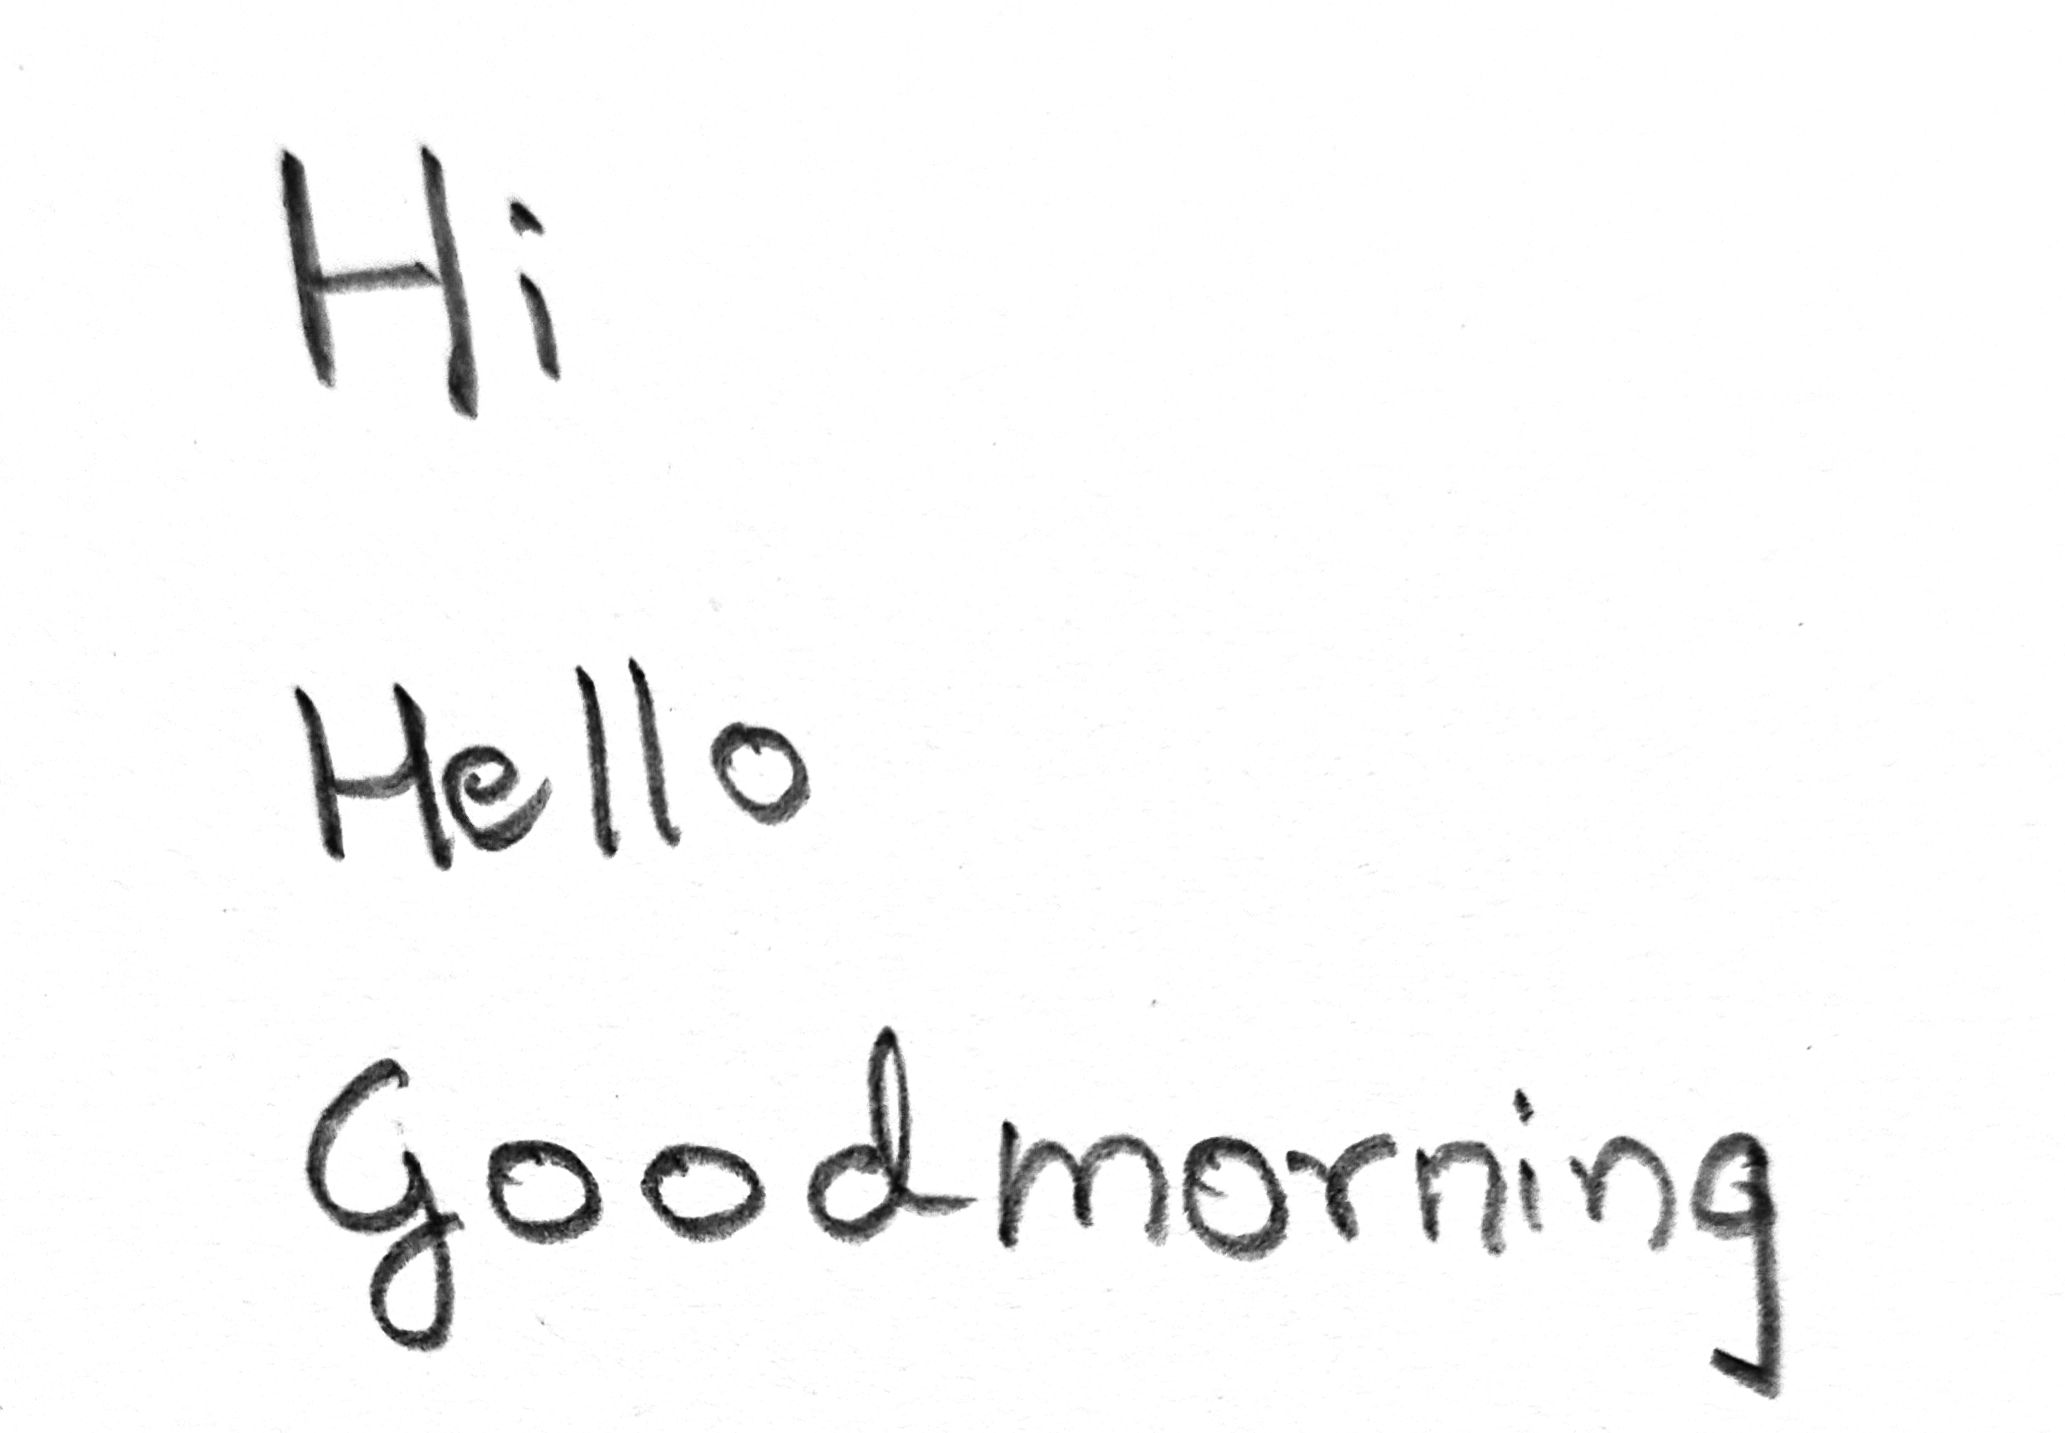 Hi
Hello
Goodmorning